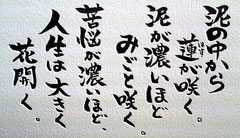 泥の中から
蓮が咲く。
泥が濃いほど
みごと咲く。
苦悩が濃いほど、
人生は大きく
花開く。